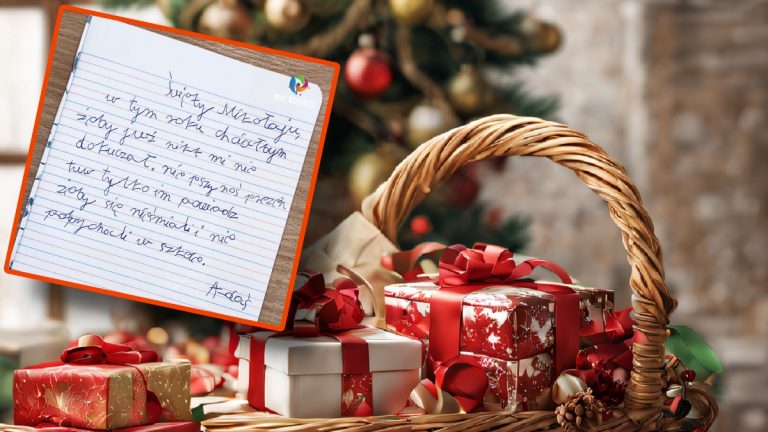 Święty Mikołaju,
w tym roku chciałbym
żeby już nikt mi nie
dokuczał. nie pszynoś prezen
tuw tylko im powiedz
żeby się nie śmiali i nie
popychali w szkole.
A-daś